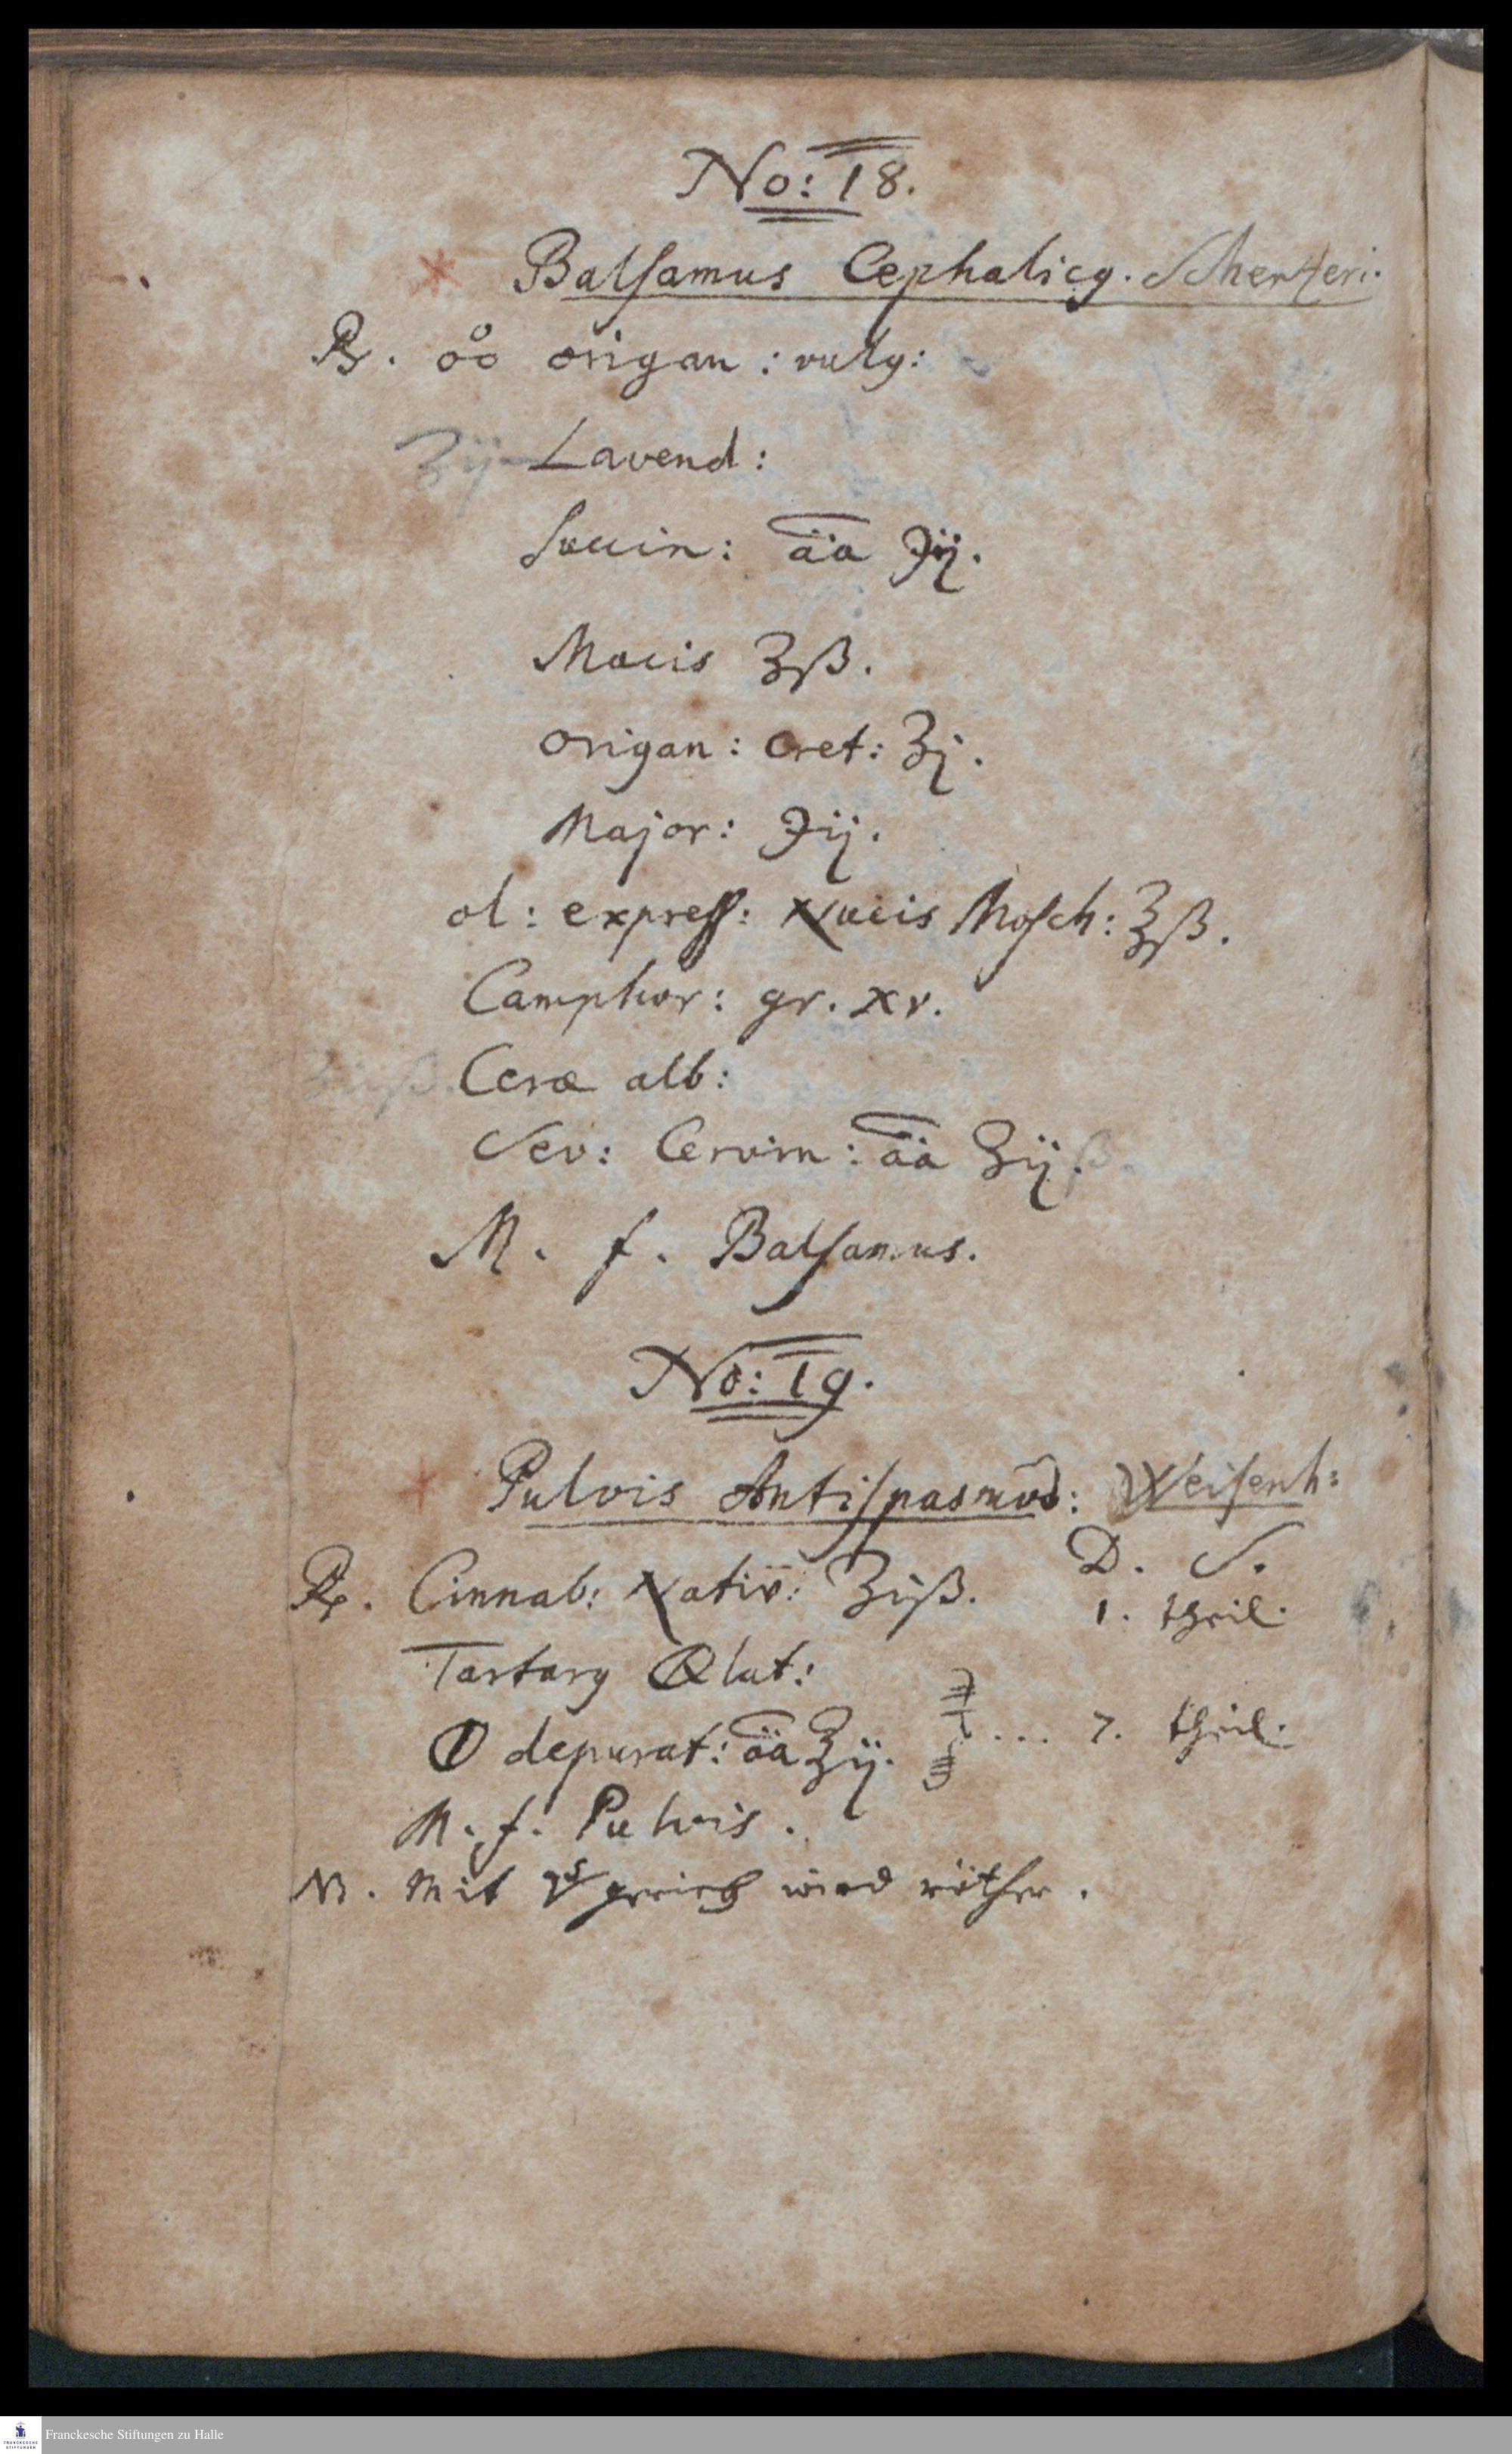 No: 18.
* Balsamus Cephalicꝯ. Scherzeri.
℞. oͦo origan: vulg:
ʒij Lavend:
succin: āā ℈ij.
Macis ʒß.
origan: Cret: ʒj.
Major: ℈ij.
ol: express: Nucis Mosch: ℥ß.
Camphor: gr. xv.
Ceræ alb:
Sev: Cervin: āā ʒij ß.
M. f. Balsamus.
No: 19.
+ Pulvis Antispasmod: Weisenh:
D. S.
℞. Cinnab: Nativ: ʒiß. 1. theil.
Tartarꝯ ⦶lat:
⦶ depurat: āā ℥ij. ... 7. theil.
M. f. Pulvis.
NB. Mit wird röther.
Franckesche Stiftungen zu Halle